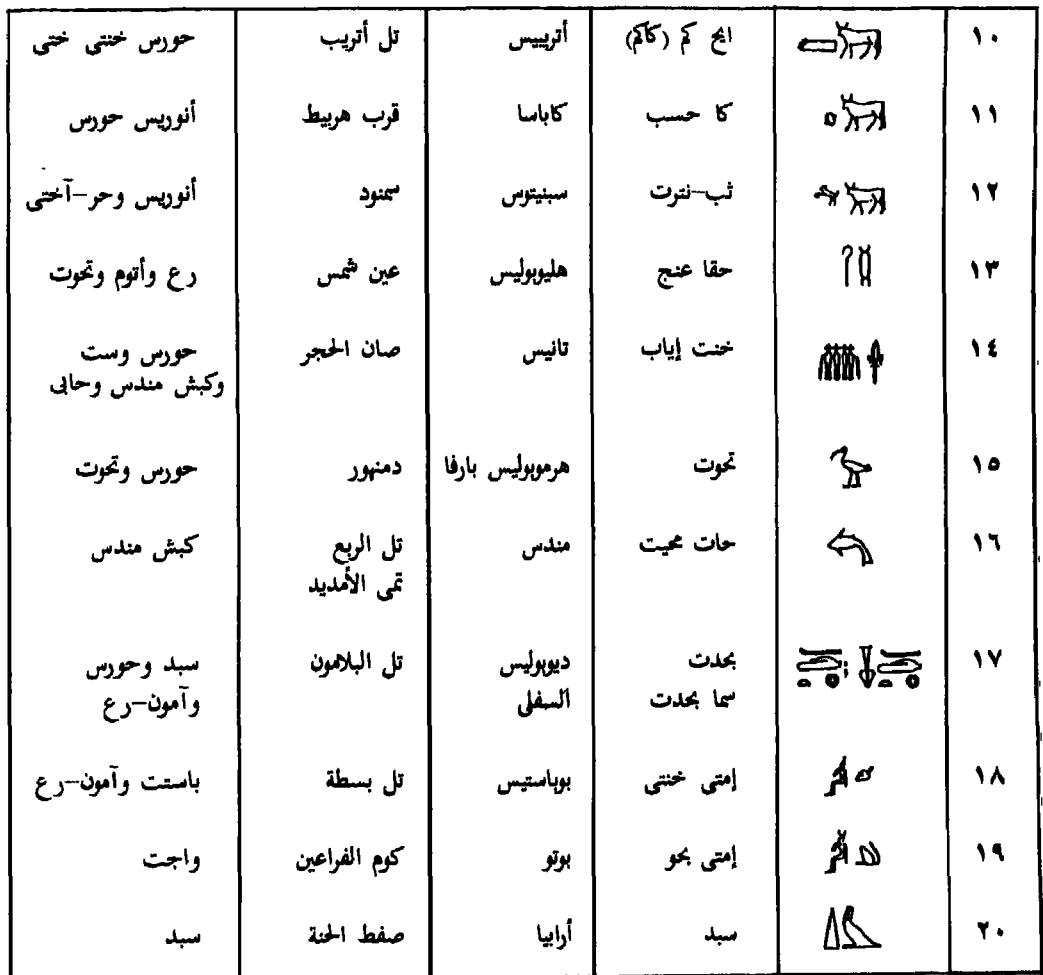 ١٠ ايح كم (كاكم) أتريبيس تل أتريب حورس خنتى ختى
١١ كا حسب كاباسا قرب هربيط أنوريس حورس
١٢ ثب–نترت سبنيتوس سمنود أنوريس وحر–آختى
١٣ حقا عنج هليوبوليس عين شمس رع وأتوم وتحوت
١٤ خنت إياب تانيس صان الحجر حورس وست
وكبش مندس وحابى
١٥ تحوت هرموبوليس بارفا دمنهور حورس وتحوت
١٦ حات محيت مندس تل الربع كبش مندس
تمى الأمديد
١٧ بحدت ديوبوليس تل البلامون سبد وحورس
سما بحدت السفلى وآمون–رع
١٨ إمتى خنتى بوباستيس تل بسطة باستت وآمون–رع
١٩ إمتى بحو بوتو كوم الفراعين واجت
٢٠ سبد أرابيا صفط الحنة سبد